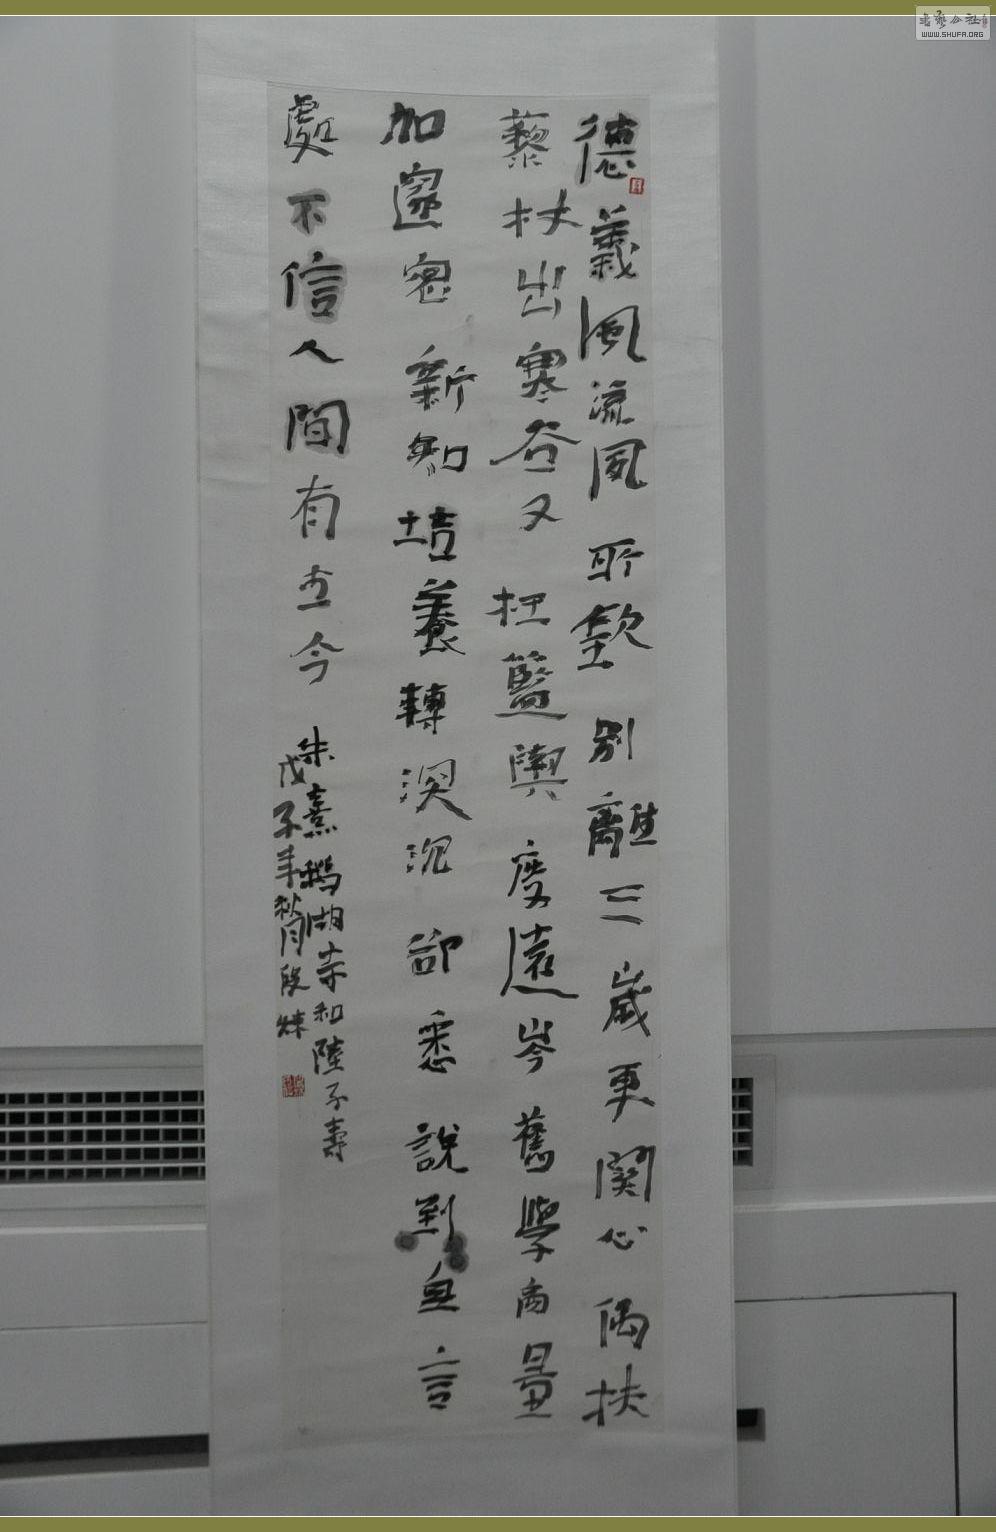 德義風流夙所欽別離三歲更關心偶扶
藜杖出寒谷又枉籃輿度遠岑舊學商量
加邃密新知培養轉深沉卻愁說到無言
處不信人間有古今
朱熹鵝湖寺和陸子壽
戊子年秋月段
WWW.SHUFA.ORG